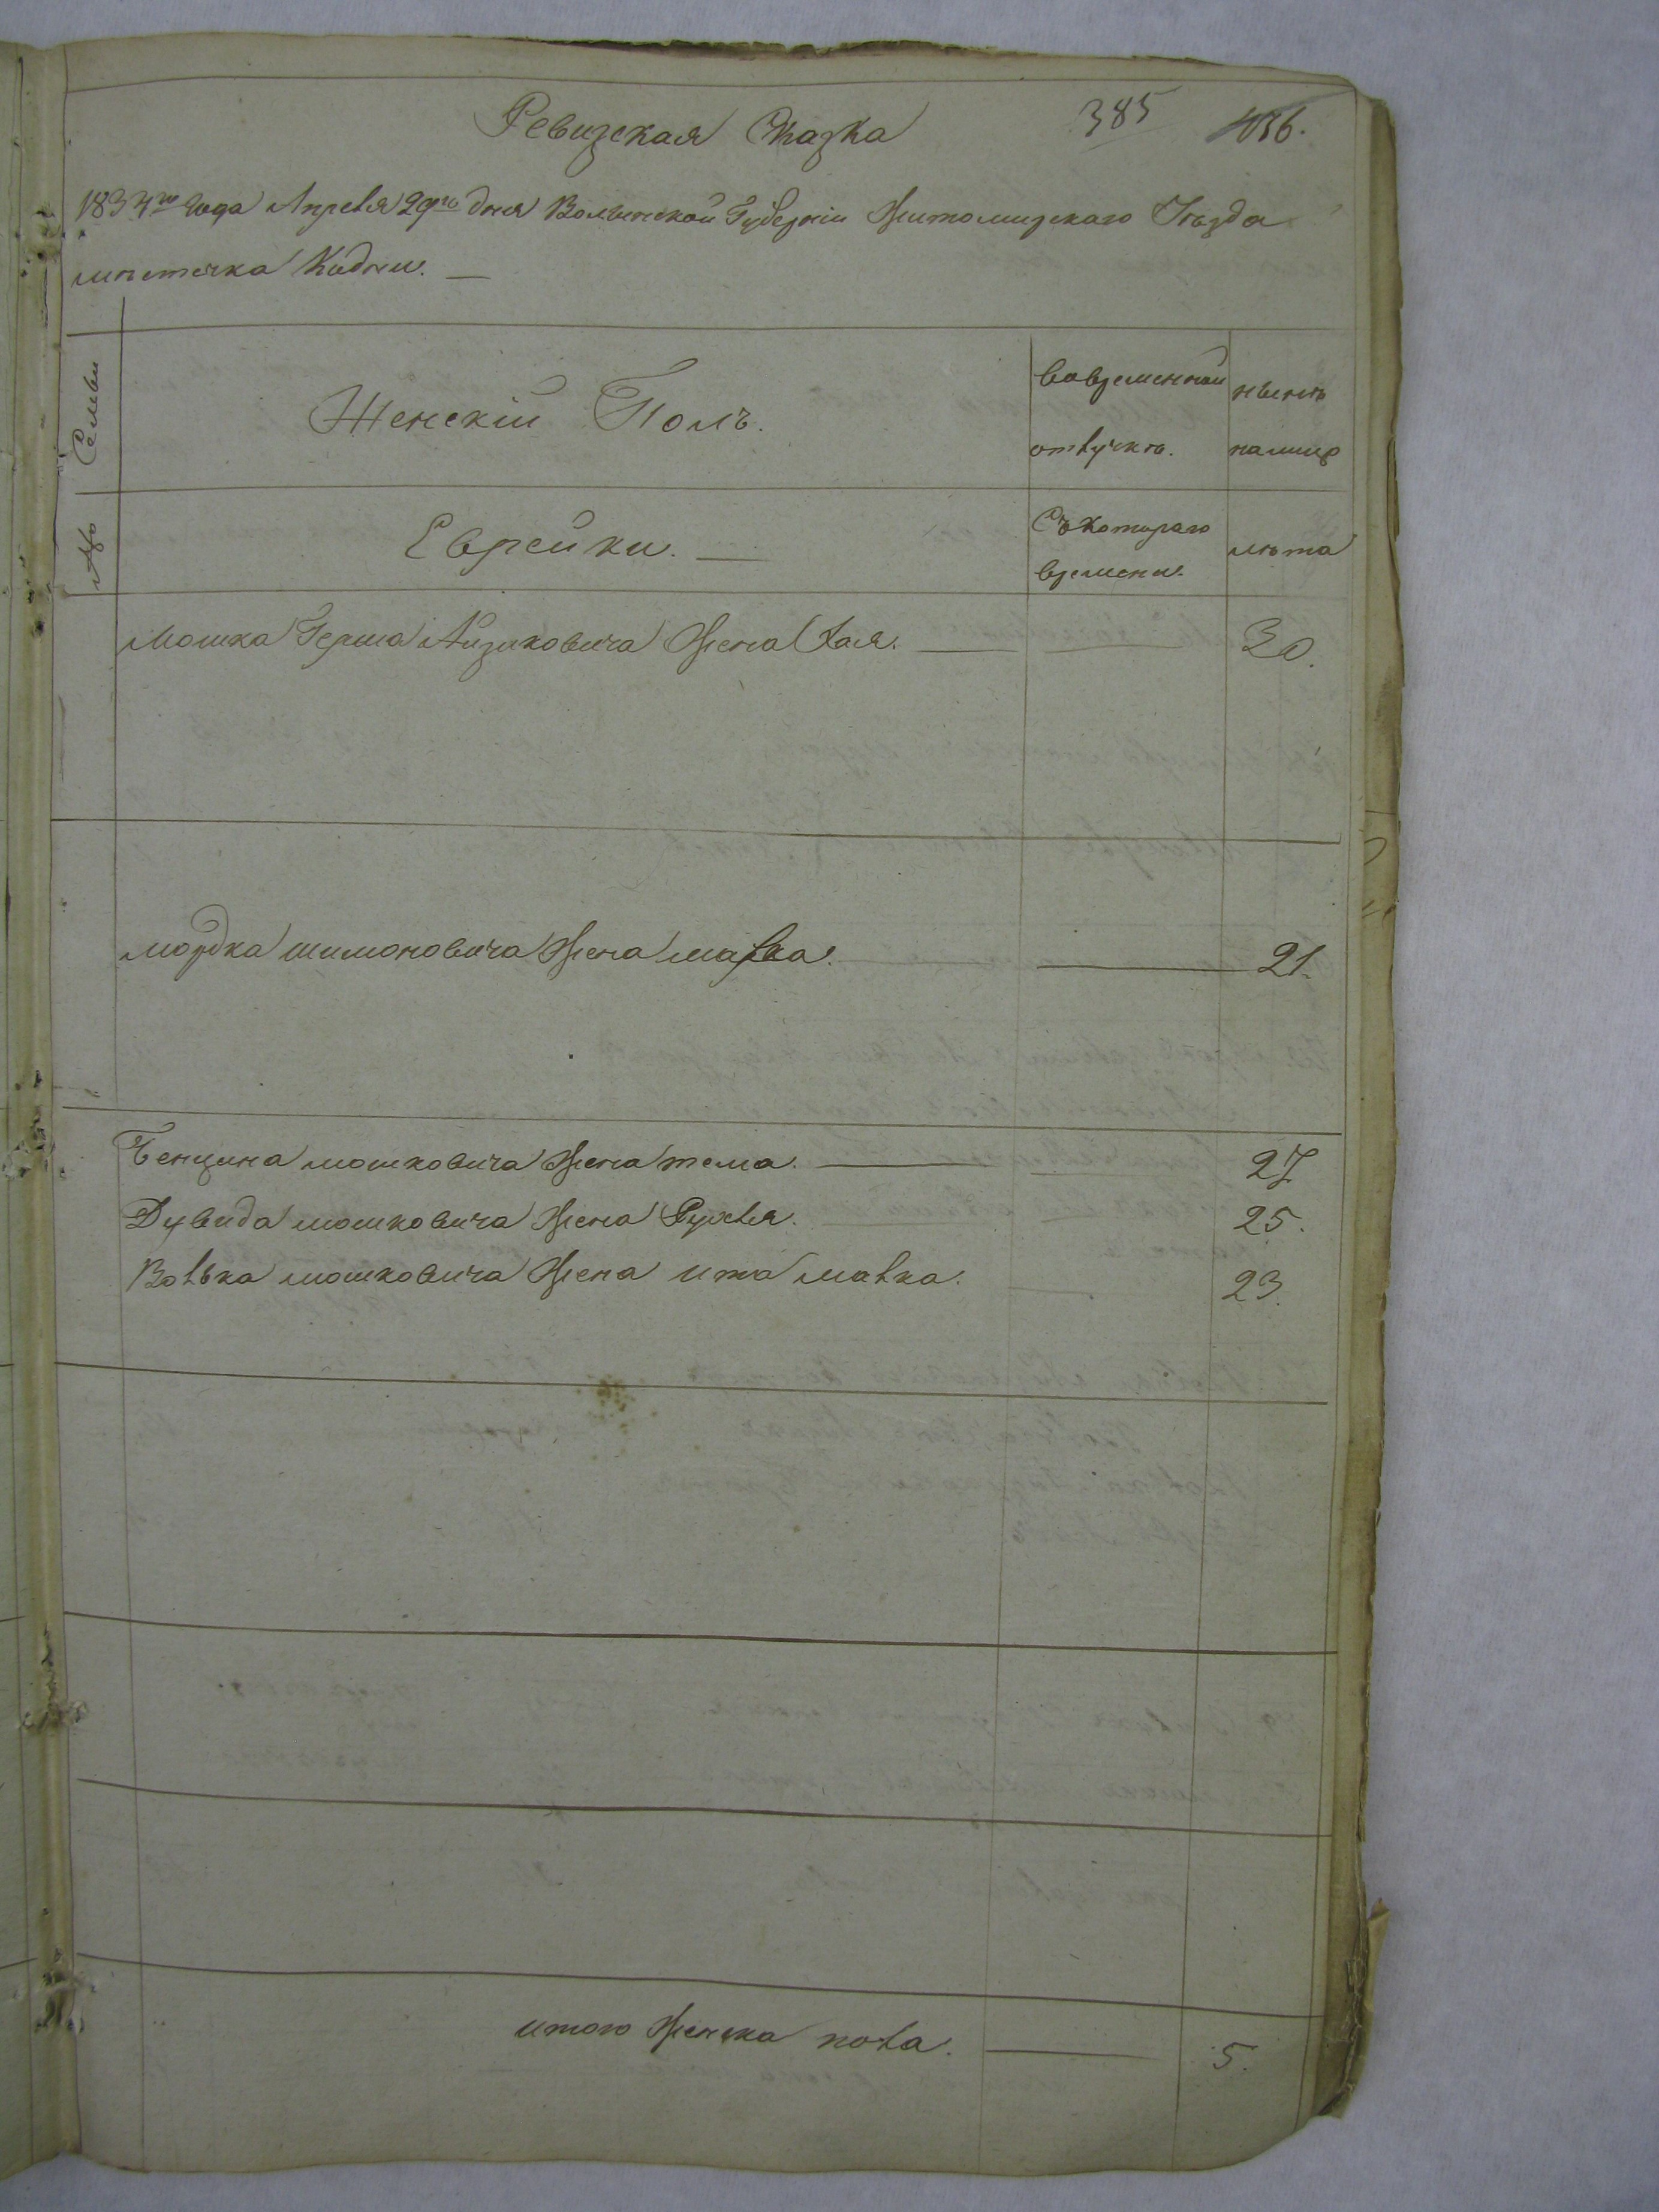 Ревизская Сказка 385 436.
1834го года Апреля 29го дня Волынской Губерніи Житомирскаго Уезда
местечка Кодни. —
Семьи
Женскій Полъ.
вовременной
отлучке.
ныне
налицо
№
Еврейки. —
Съ котораго
времени.
лета
Мошка Герша Айзиковича жена Хая. 30.
Мордка Шимоновича жена Малка. 21.
Бенциана Мошковича жена Тема. 27
Дувида Мошковича жена Рухля. 25.
Волька Мошковича жена Ита Малка. 23.
итого женска пола. 5.